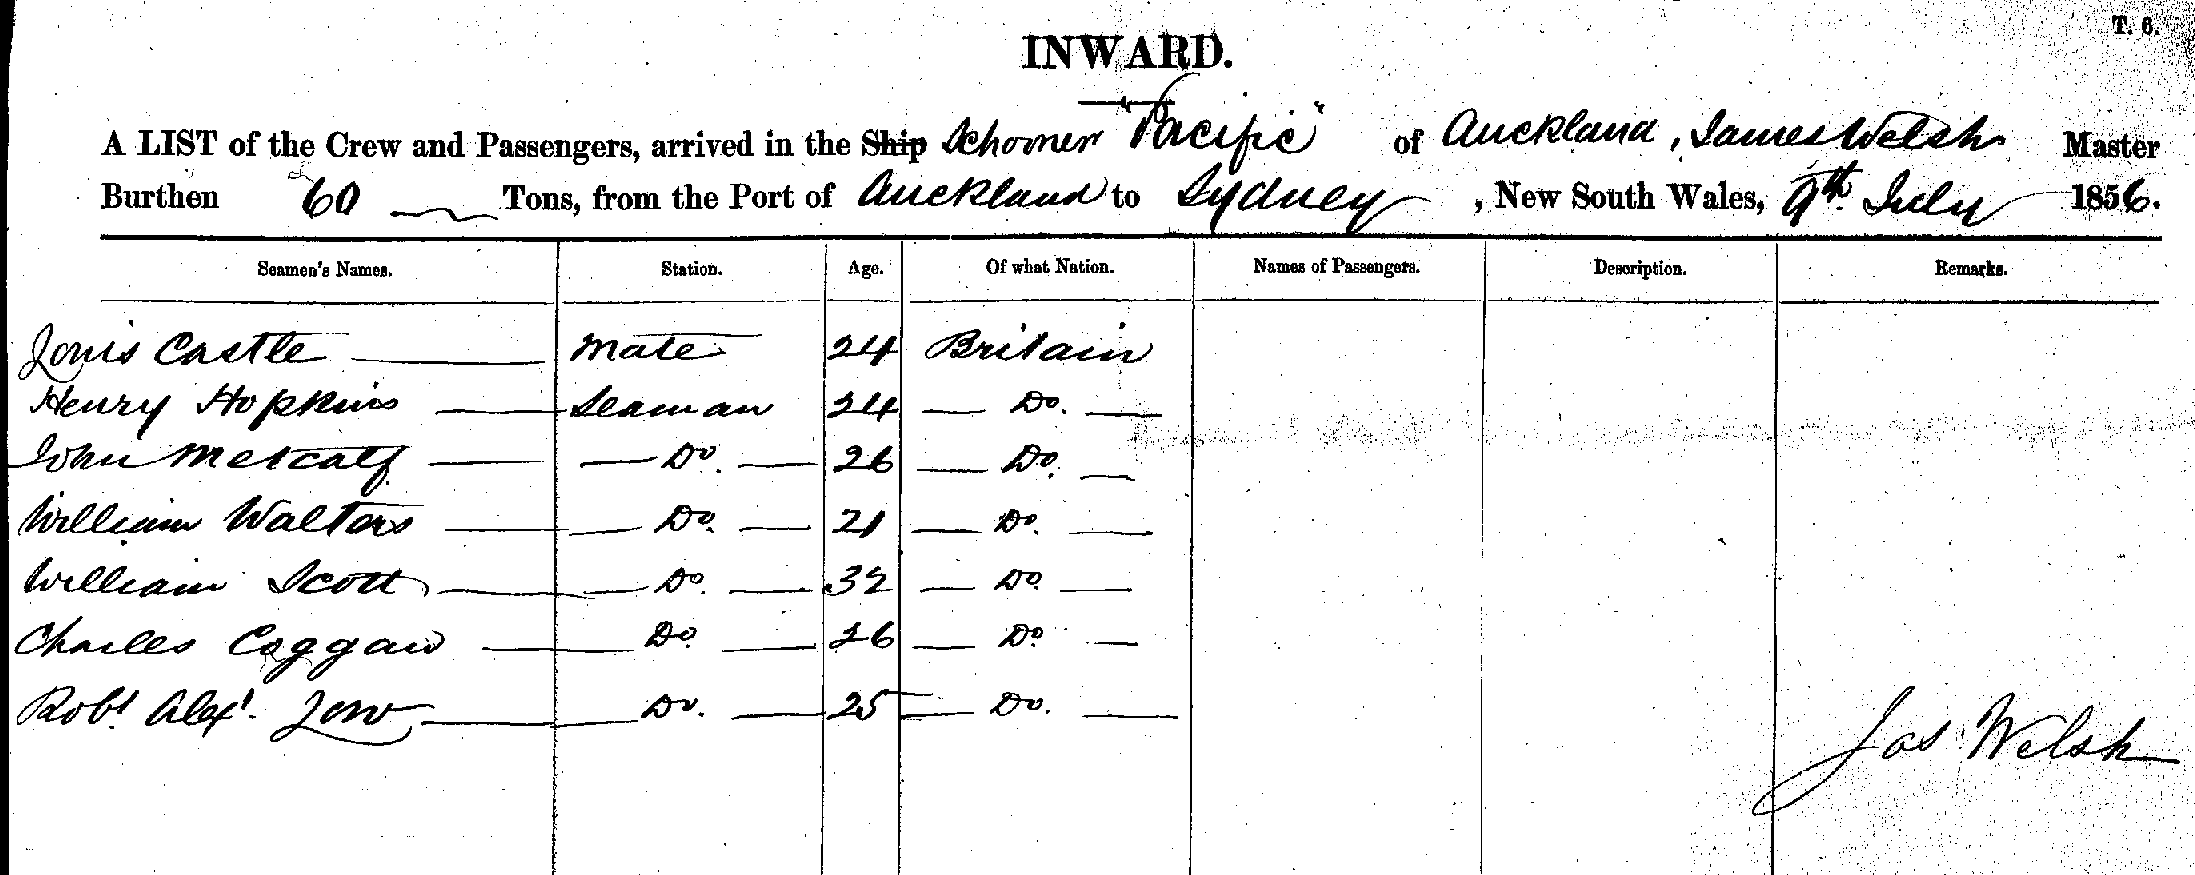 T. 6.
INWARD.
A LIST of the Crew and Passengers, arrived in the Ship Schooner "Pacific" of Auckland, James Welsh Master
Burthen 60 Tons, from the Port of Auckland to Sydney, New South Wales, 9th July 1856.
Seamen's Names. Station. Age. Of what Nation. Names of Passengers. Description. Remarks.
Louis Castle Mate 24 Britain
Henry Hopkins Seaman 24 Do.
John Metcalf Do. 26 Do.
William Walters Do. 21 Do.
William Scott Do. 32 Do.
Charles Coggan Do. 26 Do.
Robt. Alexr. Low Do. 25 Do.
Jas Welsh